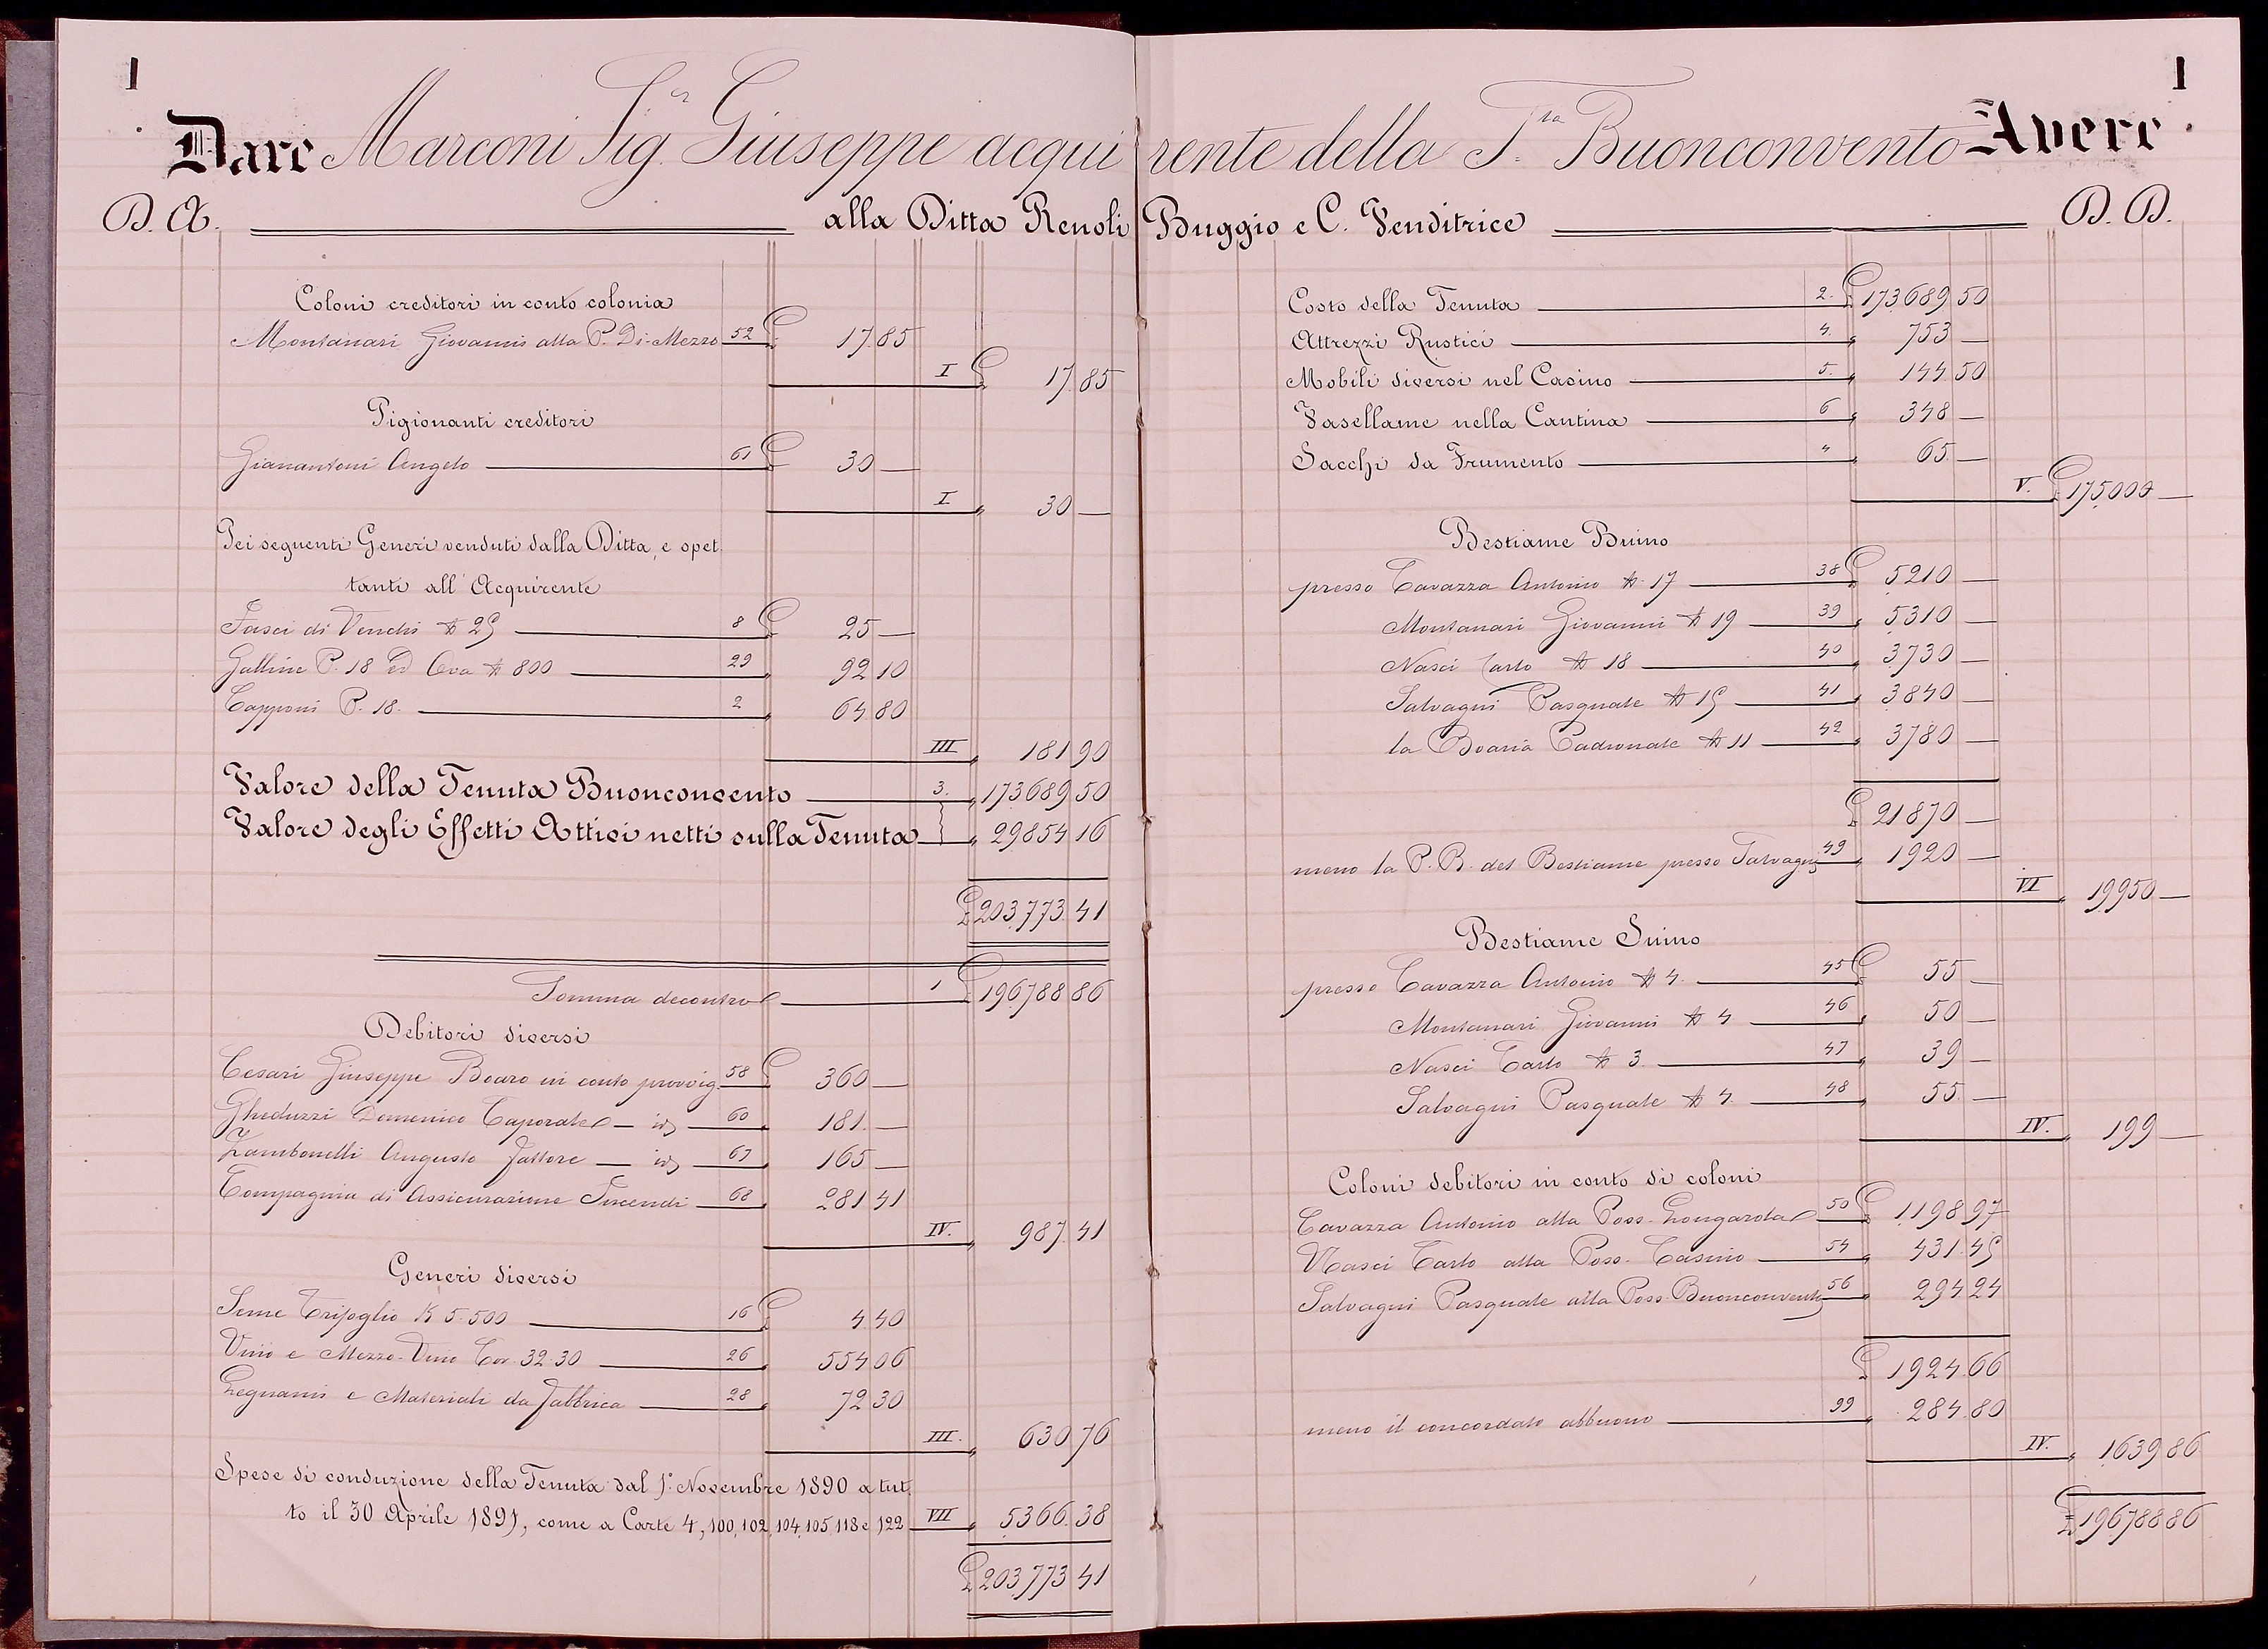 1
Dare Marconi Sig.r Giuseppe acqui
D. A. alla Ditta Renoli
Coloni creditori in conto colonia
Montanari Giovanni alla P. Di-Mezzo 52 £ 17.85
I £ 17 85
Pigionanti creditori
Gianantoni Angelo 61 £ 30 —
I „ 30 —
Pei seguenti Generi venduti dalla Ditta, e spet
tanti all'Acquirente
Fasci di Vinchi N 25 8 £ 25 —
Galline P. 18 ed Ova N 800 29 „ 92 10
Capponi P. 18. „ „ 64 80
III „ 181 90
Valore della Tenuta Buonconvento 3. „ 173689 50
Valore degli Effetti Attivi netti sulla Tenuta „ 29854 16
£ 203,773.41
Somma decontro 1 £ 196788 86
Debitori diversi
Cesari Giuseppe Boaro in conto provvig. 58 £ 360 —
Gheduzzi Domenico Caporale — id 60 „ 181. —
Zambonelli Augusto Fattore — id 67 „ 165 —
Compagnia di Assicurazione Incendi 68 „ 281 41
IV. „ 987.41
Generi diversi
Seme Trifoglio K 5.500 16 £ 4.40
Vino e Mezzo-Vino Cor. 32.30 26 „ 554 06
Legnami e Materiali da fabbrica 28 „ 72 30
III. „ 630 76
Spese di conduzione della Tenuta dal 1.° Novembre 1890 a tut.
to il 30 Aprile 1891, come a Carte 4, 100, 102, 104, 105, 118 e 122 VII „ 5366.38
£ 203,773 41
1
rente della T.ta Buonconvento Avere
Buggio e C. Venditrice D. D.
Costo della Tenuta 2. £ 173689 50
Attrezzi Rustici 4. „ 753 —
Mobili diversi nel Casino 5. „ 144 50
Vasellame nella Cantina 6 „ 348 —
Sacchi da Frumento „ „ 65 —
V. £ 175000 —
Bestiame Buino
presso Cavazza Antonio N. 17 38 £ 5210 —
Montanari Giovanni N 19 39 „ 5310 —
Nasci Carlo N 18 40 „ 3730 —
Salvagni Pasquale N 15 41 „ 3840 —
la Boaria Padronale N 11 42 „ 3780 —
£ 21870 —
meno la P. R. del Bestiame presso Salvagni 49 „ 1920 —
VI „ 19950 —
Bestiame Suino
presso Cavazza Antonio N 4. 45 £ 55 —
Montanari Giovanni N 4 46 „ 50 —
Nasci Carlo N 3. 47 „ 39 —
Salvagni Pasquale N 4. 48 „ 55 —
IV. „ 199 —
Coloni debitori in conto di coloni
Cavazza Antonio alla Poss. Longarola 50 £ 1198 97
Nasci Carlo alla Poss. Casino 54 „ 431.45
Salvagni Pasquale alla Poss. Buonconvento 56 „ 294 24
£ 1924.66
meno il concordato abbuono 99 „ 284.80
IV. „ 1639 86
£ 196788 86